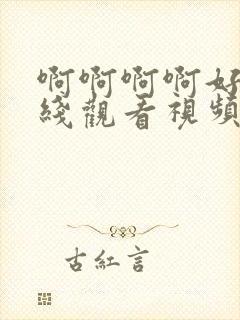 啊啊啊啊好
綫觀看視頻
古紅言